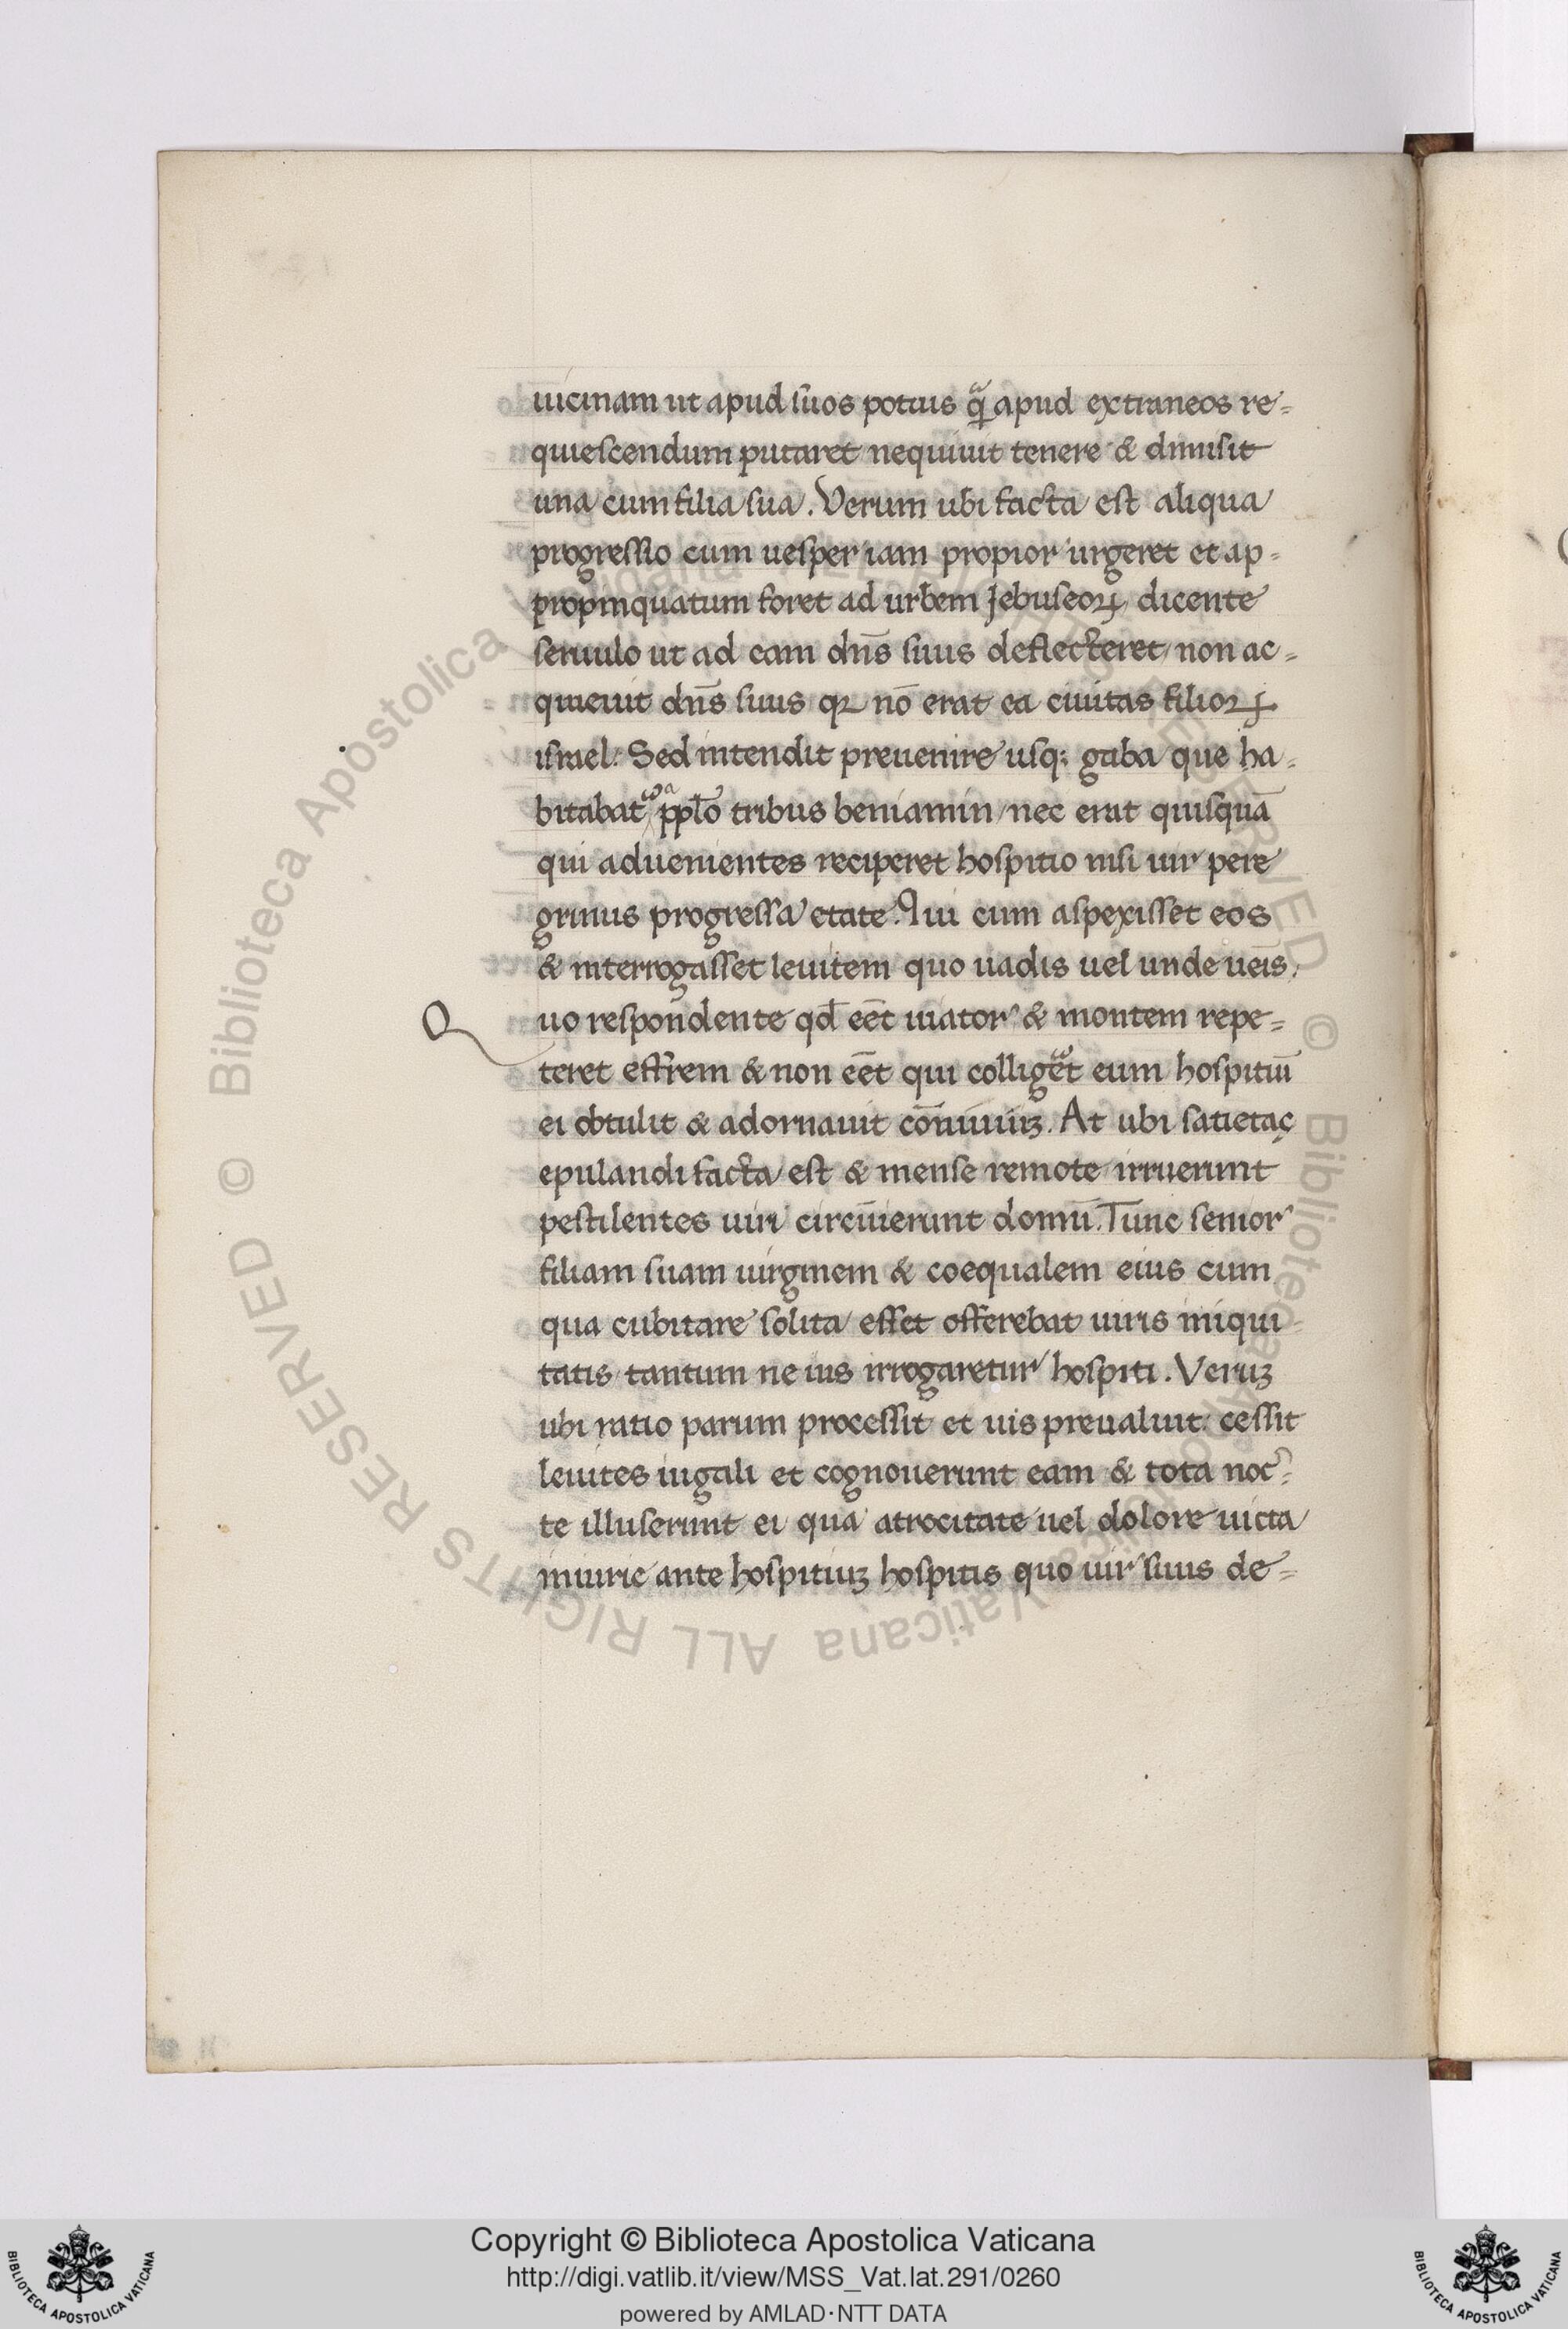 uicinam ut apud suos potius qᷓ apud extraneos re⸗
quiescendum putaret nequiuit tenere & dimisit
una cum filia sua. Verum ubi facta est aliqua
progressio cum uesper iam propior urgeret et ap⸗
propinquatum foret ad urbem Jebuseoꝝ dicente
seruulo ut ad eam dn̄s suus deflecteret non ac⸗
quieuit dn̄s suus qꝛ nō erat ea ciuitas filioꝝ
israel. Sed intendit preuenire usqꝫ gaba que ha⸗
bitabat᷒ a pplo tribus beniamin nec erat quisquā
qui aduenientes reciperet hospitio nisi uir pere
grinus progressa etate. Qui cum aspexisset eos
& interrogasset leuitem quo uadis uel unde ueīs.
Quo respondente qd̄ eēt uiator & montem repe⸗
teret effrem & non eēt qui colligēt eum hospitiū
ei obtulit & adornauit cōuiuiuꝫ. At ubi satietas
epulandi facta est & mense remote irruerunt
pestilentes uiri circūierunt domū. Tunc senior
filiam suam uirginem & coequalem eius cum
qua cubitare solita esset offerebat uiris iniqui
tatis tantum ne uis irrogaretur hospiti. Veruꝫ
ubi ratio parum processit et uis preualuit. cessit
leuites iugali et cognouerunt eam & tota noc⸗
te illuserunt ei qua atrocitate uel dolore uicta
iniurie ante hospitiuꝫ hospitis quo uir suus de⸗
© Biblioteca Apostolica Vaticana ALL RIGHTS RESERVED © Biblioteca Apostolica Vaticana ALL RIGHTS RESERVED
Copyright © Biblioteca Apostolica Vaticana
http://digi.vatlib.it/view/MSS_Vat.lat.291/0260
powered by AMLAD·NTT DATA
BIBLIOTECA APOSTOLICA VATICANA
BIBLIOTECA APOSTOLICA VATICANA